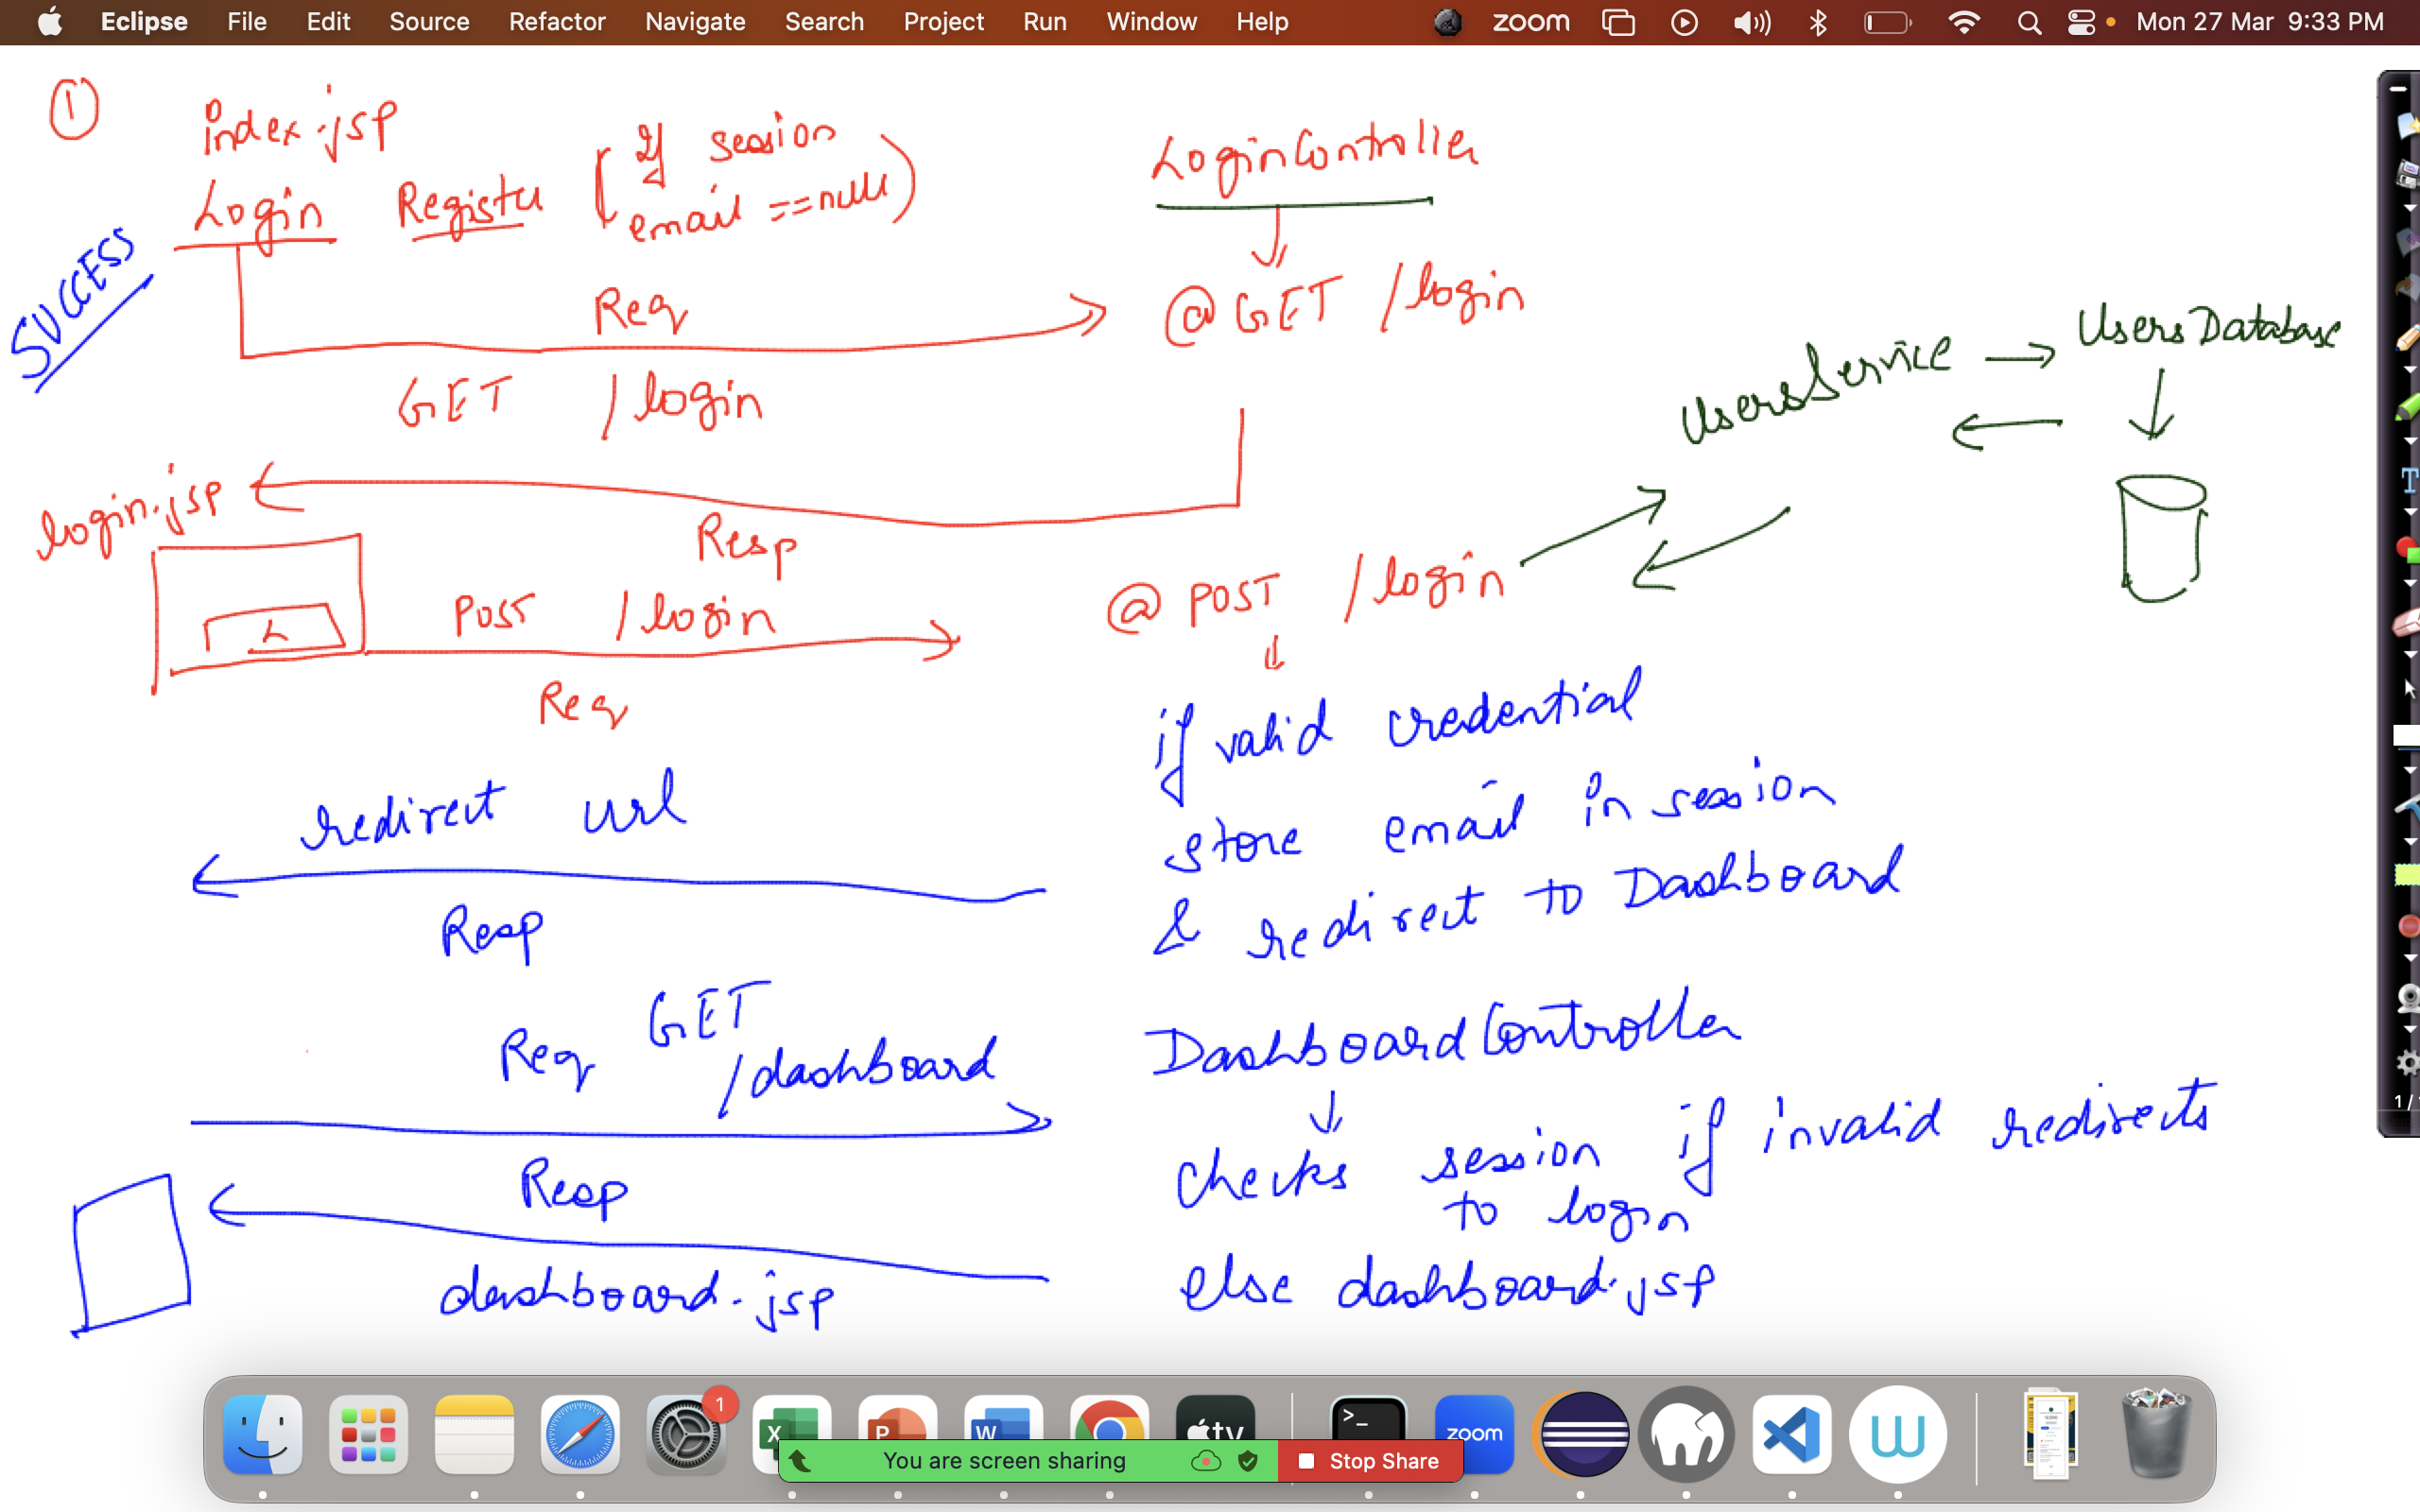 Eclipse File Edit Source Refactor Navigate Search Project Run Window Help zoom Mon 27 Mar 9:33 PM
1
index.jsp
Login Register (If session email == null)
SUCCESS
LoginController
@GET /login
Req
GET /login
UsersService
UsersDatabase
login.jsp
Resp
L
POST /login
Req
@ POST /login
if valid credential
store email in session
& redirect to Dashboard
redirect url
Resp
Req GET
/dashboard
DashboardController
checks session if invalid redirects
to login
else dashboard.jsp
Resp
dashboard.jsp
T
1/
1
X
P
W
tv
>_
zoom
W
You are screen sharing
Stop Share